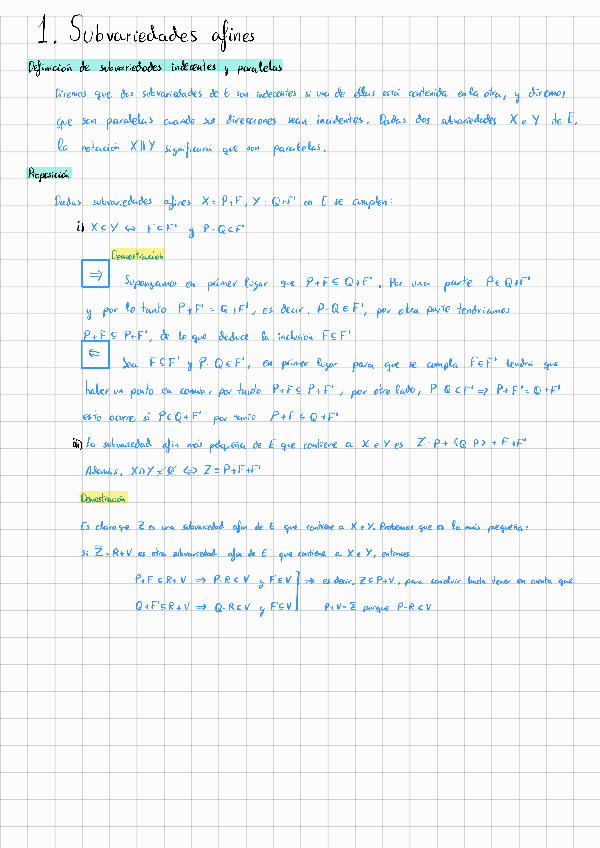 1. Subvariedades afines
Definición de subvariedades indecentes y paralelas
Diremos que dos subvariedades de E son indecentes si una de ellas está contenida en la otra, y diremos
que son paralelas cuando sus direcciones sean incidentes. Dadas dos subvariedades X e Y de E,
la notación X∥Y significará que son paralelas.
Proposición
Dadas subvariedades afines X = P+F, Y = Q+F' en E se cumplen:
i) X ⊆ Y ⇔ F ⊆ F' y P-Q ∈ F'
Demostración
⇒ Supongamos en primer lugar que P+F ⊆ Q+F'. Por una parte P ∈ Q+F'
y por lo tanto P+F' = Q+F', es decir, P-Q ∈ F', por otra parte tendríamos
P+F ⊆ P+F', de lo que deduce la inclusión F ⊆ F'
⇐ Sea F ⊆ F' y P-Q ∈ F', en primer lugar para que se cumpla F ⊆ F' tendrá que
haber un punto en común, por tanto P+F ⊆ P+F', por otro lado, P-Q ∈ F' ⇒ P+F' = Q+F'
esto ocurre si P ∈ Q+F' por tanto P+F ⊆ Q+F'
ii) La subvariedad afín más pequeña de E que contiene a X e Y es Z = P + <Q-P> + F+F'
Además, X∩Y ≠ ∅ ⇔ Z = P+F+F'
Demostración
Es claro que Z es una subvariedad afín de E que contiene a X e Y. Probemos que es la más pequeña:
Si Z̄ = R+V es otra subvariedad afín de E que contiene a X e Y, entonces
P+F ⊆ R+V ⇒ P-R ∈ V y F ⊆ V ] ⇒ es decir, Z ⊆ P+V, para concluir basta tener en cuenta que
Q+F' ⊆ R+V ⇒ Q-R ∈ V y F' ⊆ V P+V = Z̄ porque P-R ∈ V